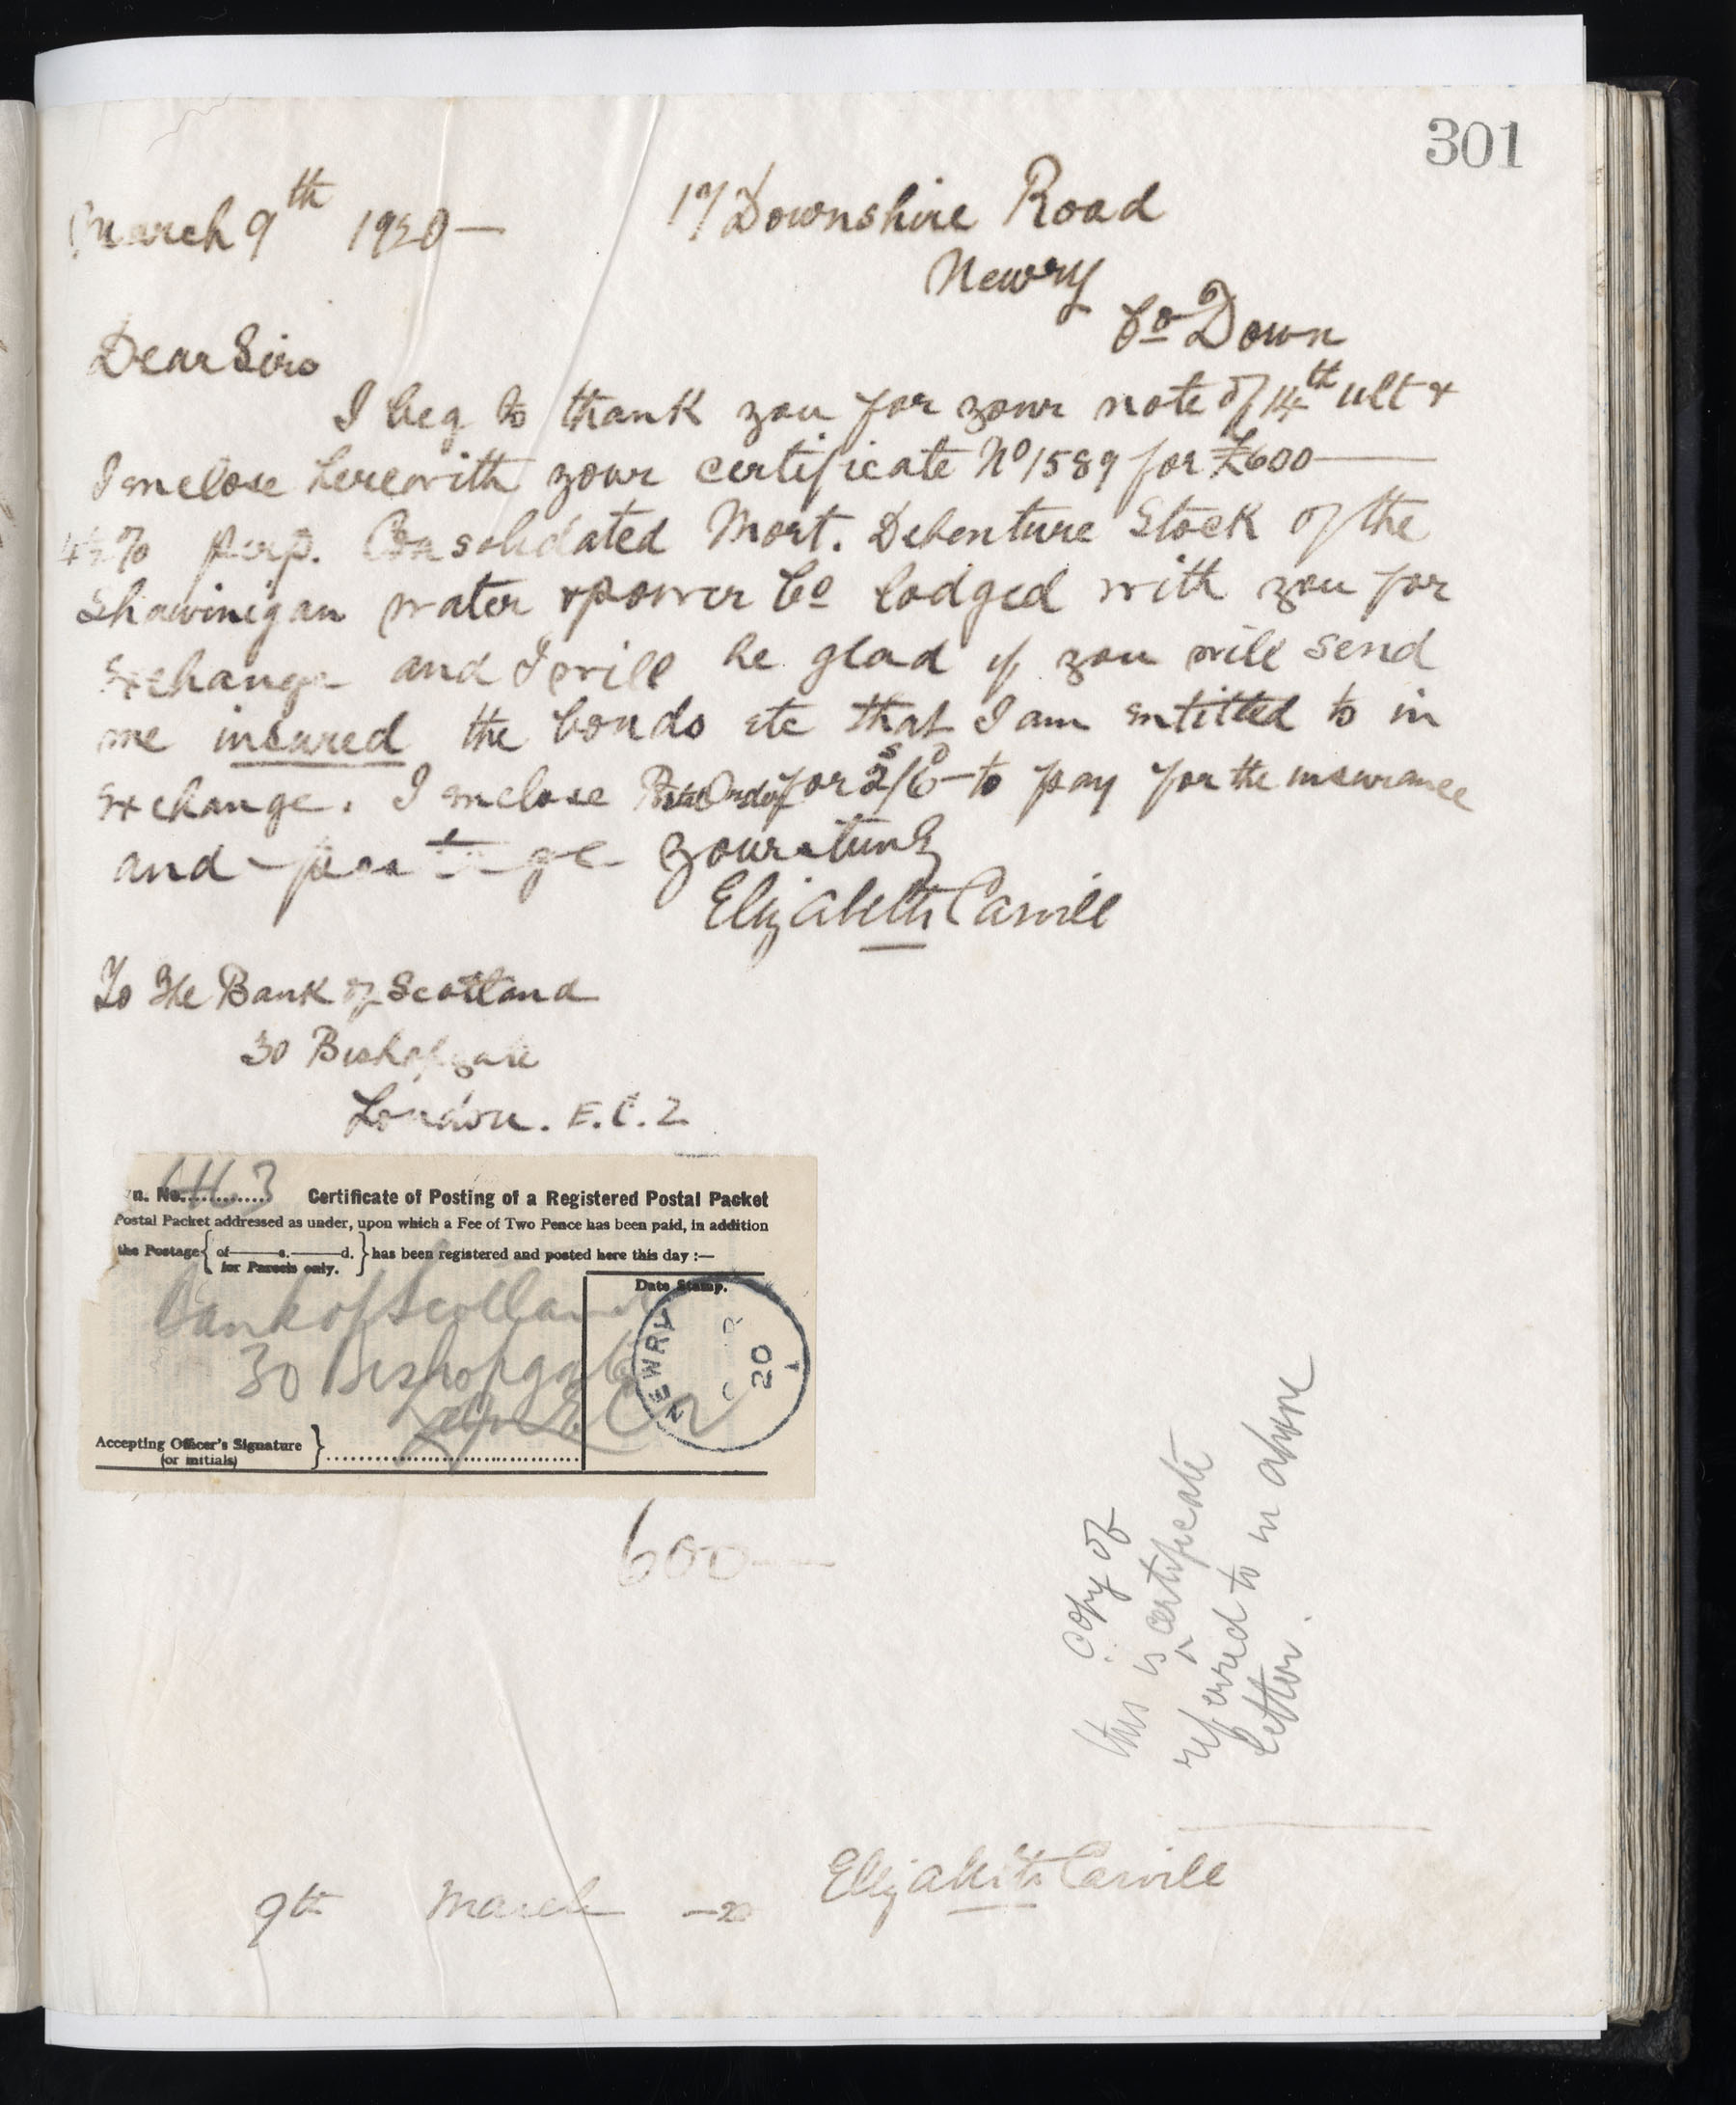 301
March 9th 1920—
17 Downshire Road
Newry
Co Down
Dear Sirs
I beg to thank you for your note of 14th ult &
I enclose herewith your certificate No 1589 for £600—
4½% perp. Consolidated Mort. Debenture Stock of the
Shawinigan water & power Co lodged with you for
exchange and I will be glad if you will send
me insured the bonds etc that I am entitled to in
exchange. I enclose Postal Order for 2s/6D— to pay for the insurance
and postage yours truly
Elizabeth Carvill
To The Bank of Scotland
30 Bishopgate
London. E.C.2
n. No. 3
Certificate of Posting of a Registered Postal Packet
Postal Packet addressed as under, upon which a Fee of Two Pence has been paid, in addition
the Postage { of——s.——d. } has been registered and posted here this day :—
for Parcels only.
Date Stamp.
Bank of Scotland
30 Bishopgate
EC2
NEWRY
20
Accepting Officer's Signature }
(or initials)
600—
copy of
this is ^ certificate
referred to in above
letter.
9th March —20
Elizabeth Carvill